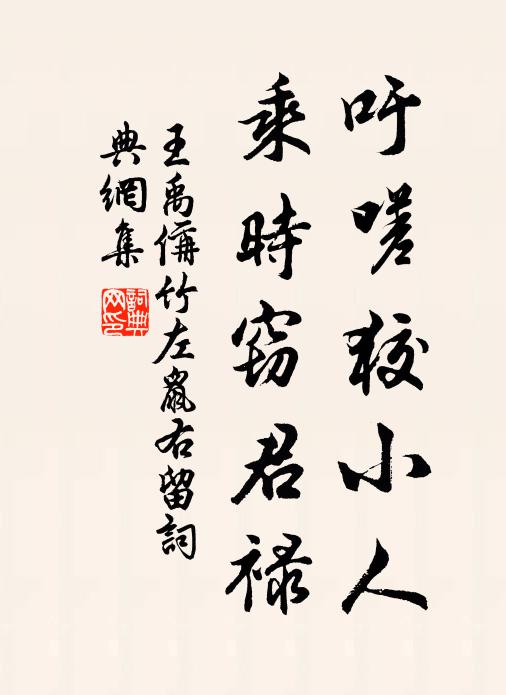 吁嗟狡小人
乘時窃君祿
王禹偁竹左鼠右留詞
典網集
詞典网印